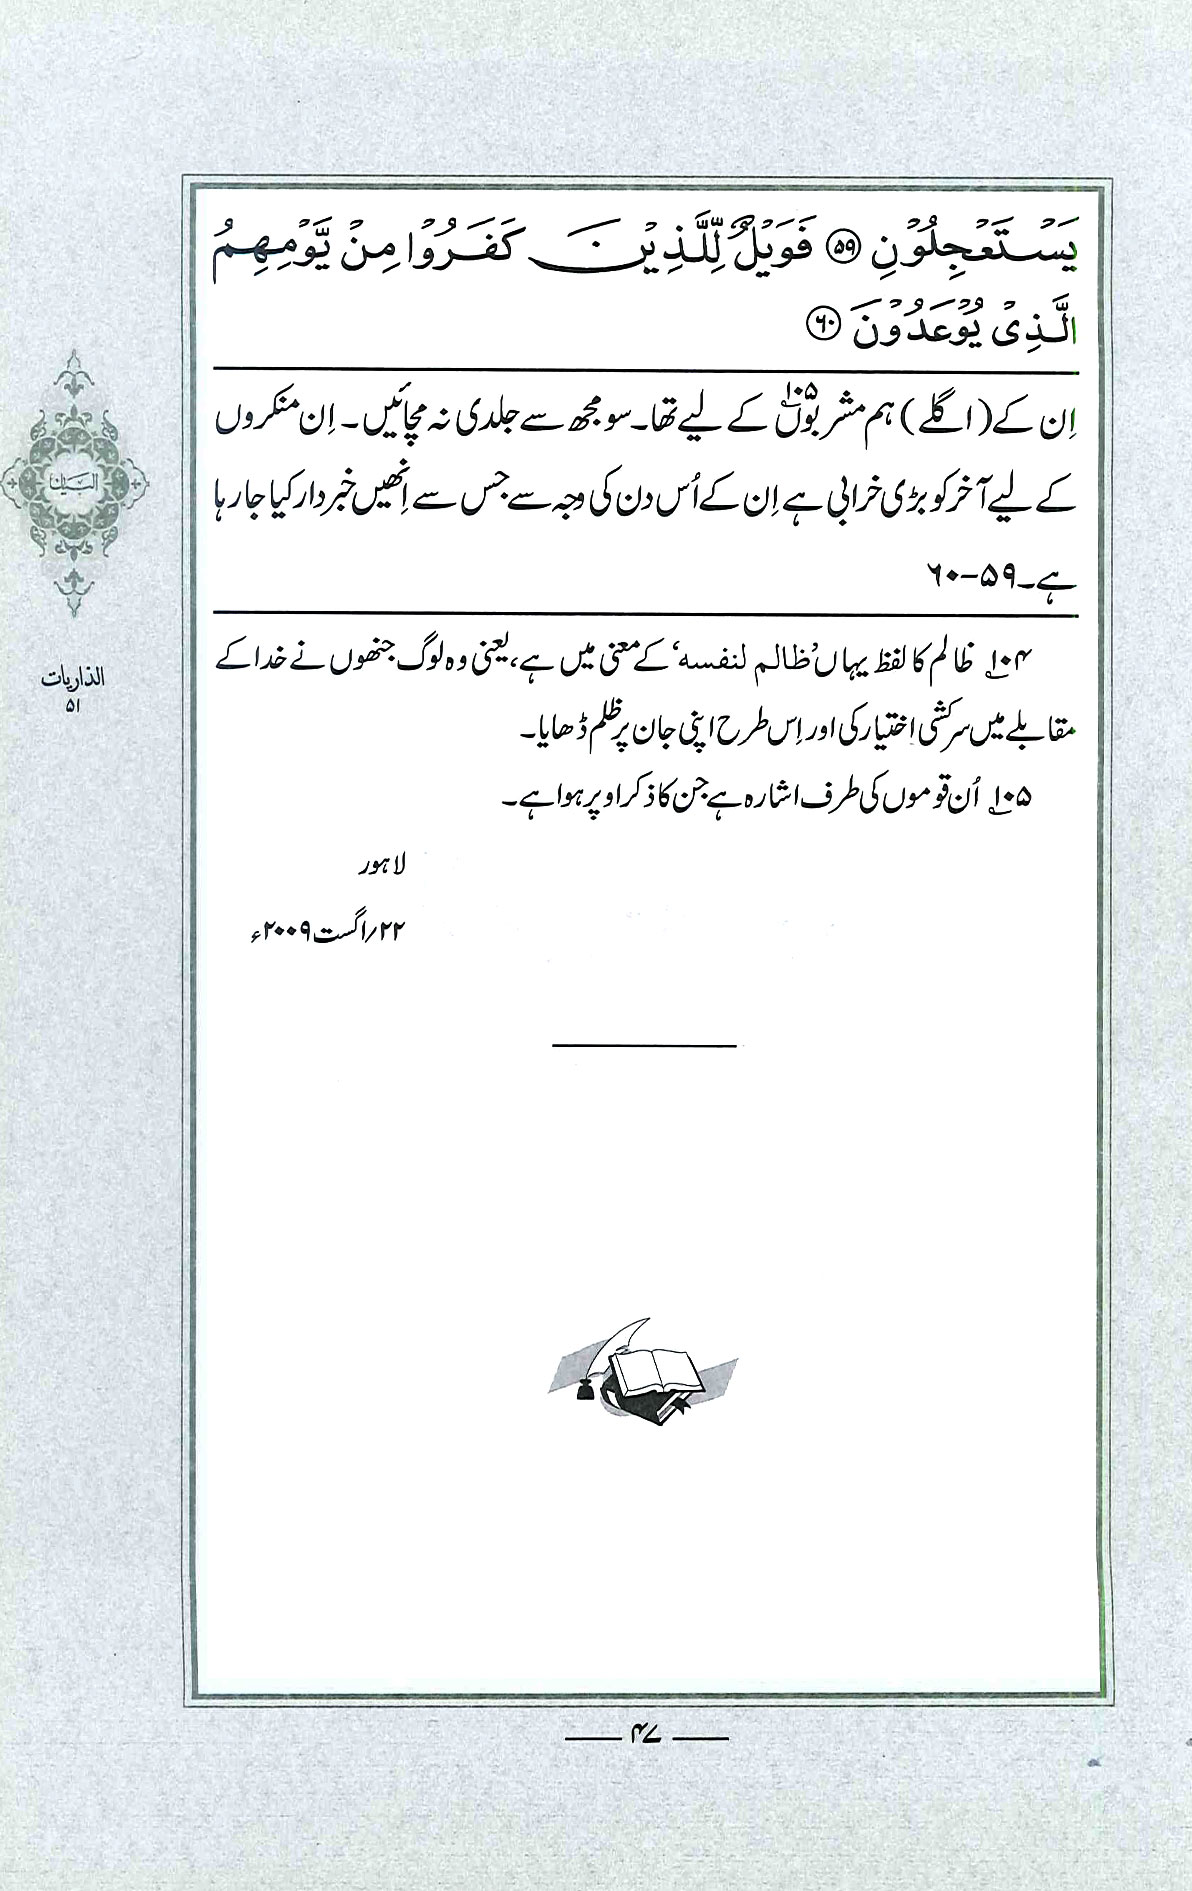 يَسْتَعْجِلُوْنِ ﴿۵۹﴾ فَوَيْلٌ لِّلَّذِيْنَ كَفَرُوْا مِنْ يَّوْمِهِمُ
الَّذِىْ يُوْعَدُوْنَ ﴿۶۰﴾
اِن کے (اگلے) ہم مشربوں۱۰۵ کے لیے تھا۔ سو مجھ سے جلدی نہ مچائیں۔ اِن منکروں
کے لیے آخر کو بڑی خرابی ہے اِن کے اُس دن کی وجہ سے جس سے اِنھیں خبردار کیا جا رہا
ہے۔ ۵۹-۶۰
۱۰۴؎ ظالم کا لفظ یہاں ’ظالم لنفسه‘ کے معنی میں ہے، یعنی وہ لوگ جنھوں نے خدا کے
مقابلے میں سرکشی اختیار کی اور اِس طرح اپنی جان پر ظلم ڈھایا۔
۱۰۵؎ اُن قوموں کی طرف اشارہ ہے جن کا ذکر اوپر ہوا ہے۔
لاہور
۲۲/اگست ۲۰۰۹ء
البیان
الذاریات
۵۱
۴۷